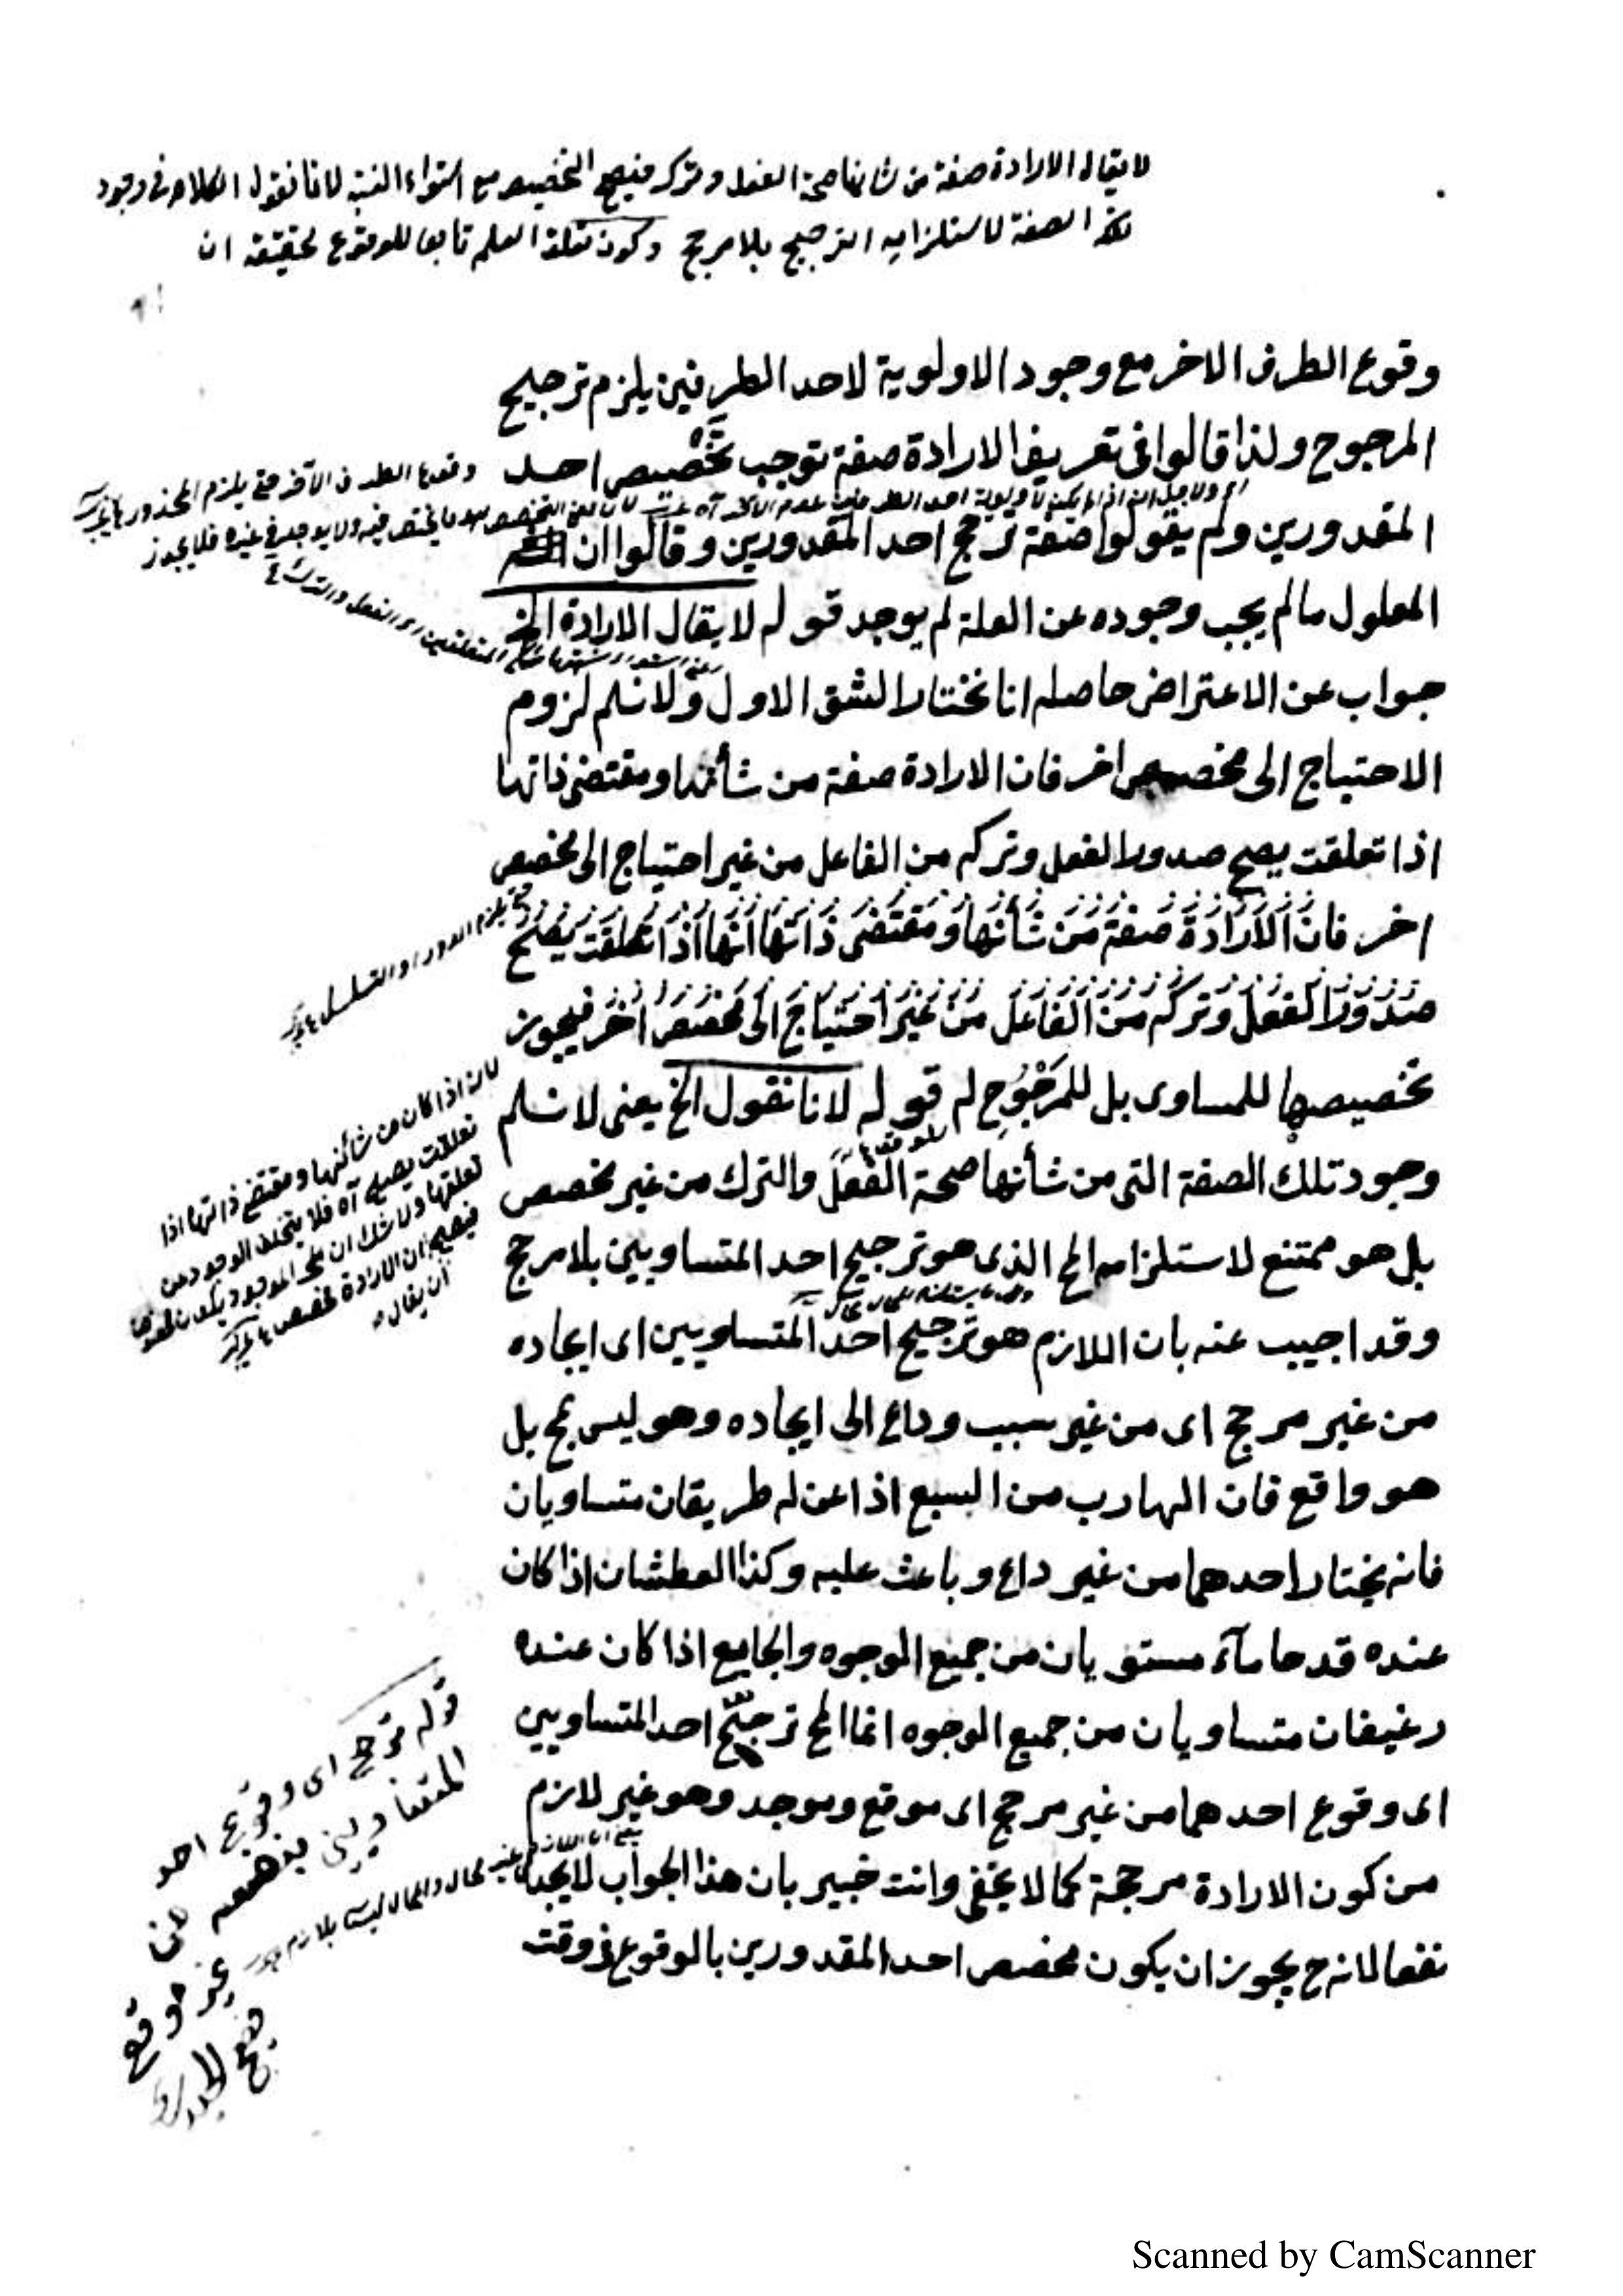 لا يقال الارادة صفة من شانها صحة الفعل وتركه فيصح التخصيص مع استواء النسبة لانا نقول الكلام فى وجود
تلك الصفة لاستلزامه الترجيح بلا مرجح وكون تعلق العلم تابعا للوقوع لحقيقته ان
وقوع الطرف الاخر مع وجود الاولوية لاحد الطرفين يلزم ترجيح
المرجوح ولذا قالوا فى تعريف الارادة صفة توجب تخصيص احد
المقدورين ولم يقولوا صفة ترجح احد المقدورين وقالوا ان
المعلول ما لم يجب وجوده عن العلة لم يوجد قوله لا يقال الارادة الخ
جواب عن الاعتراض حاصله انا نختار الشق الاول ولا نسلم لزوم
الاحتياج الى مخصص اخر فان الارادة صفة من شأنها ومقتضى ذاتها
اذا تعلقت يصح صدور الفعل وتركه من الفاعل من غير احتياج الى مخصص
اخر فان الارادة صفة من شأنها ومقتضى ذاتها انها اذا تعلقت يصح
صدور الفعل وتركه من الفاعل من غير احتياج الى مخصص اخر فيجوز
تخصيصها للمساوى بل للمرجوح له قوله لانا نقول الخ يعنى لا نسلم
وجود تلك الصفة التى من شأنها صحة الفعل والترك من غير مخصص
بل هو ممتنع لاستلزامه المح الذى هو ترجيح احد المتساويين بلا مرجح
وقد اجيب عنه بان اللازم هو ترجيح احد المتساويين اى ايجاده
من غير مرجح اى من غير سبب وداع الى ايجاده وهو ليس بمح بل
هو واقع فان الهارب من السبع اذا عن له طريقان متساويان
فانه يختار احدهما من غير داع وباعث عليه وكذا العطشان اذا كان
عنده قدحا ماء مستويان من جميع الوجوه والجايع اذا كان عنده
رغيفان متساويان من جميع الوجوه انما المح ترجح احد المتساويين
اى وقوع احدهما من غير مرجح اى موقع وموجد وهو غير لازم
من كون الارادة مرجحة كما لا يخفى وانت خبير بان هذا الجواب لا يجدى
نفعا لانه ح يجوز ان يكون مخصص احد المقدورين بالوقوع فى وقت
وقوع الطرف الآخر حتى يلزم المحذور
المتعلقين اى الفعل والترك
يلزم الدور او التسلسل
لانه اذا كان من شأنها ومقتضى ذاتها اذا
تعلقت يصح آه فلا يتخلف الوجود عن
تعلقها ولا شك ان
فيصح ان الارادة مخصص
ان يقال
قوله ترجح اى وقوع احد
المتساويين بنفسه من
غير موقع
Scanned by CamScanner